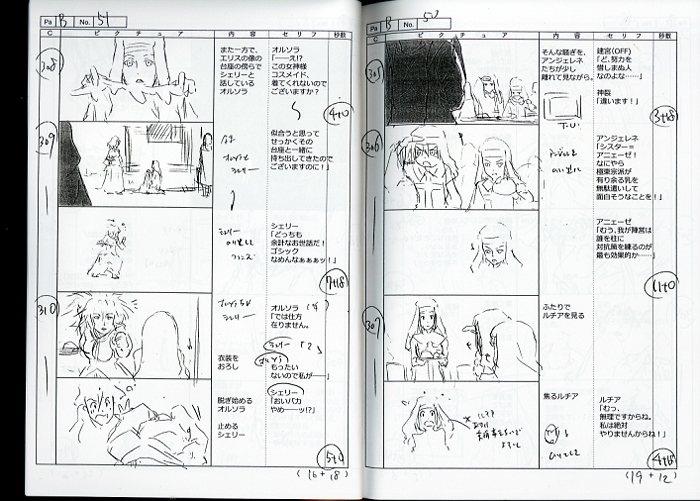 Pa B No. 50
C ピクチュア 内容 セリフ 秒数
305
そんな騒ぎを、
アンジェレネ
たちが少し
離れて見ながら。
建宮(OFF)
「ど、努力を
惜しまぬ人
なのよな……」
神裂
「違います！」
3+18
306
アンジェレネ
「シスター＝
アニェーゼ！
なにやら
極東宗派が
有り余る乳を
無駄遣いして
面白そうなことを！」
アニェーゼ
「むう、我が陣営は
誰を柱に
対抗策を練るのが
最も効果的か……」
11+0
307
ふたりで
ルチアを見る
焦るルチア
ルチア
「むっ、
無理ですからね。
私は絶対
やりませんからね！」
4+18
(19+12)
Pa B No. 51
C ピクチュア 内容 セリフ 秒数
308
また一方で、
エリスの像の
台座の傍らで
シェリーと
話している
オルソラ
オルソラ
「――え!?
この女神様
コスメイド、
着てくれないので
ございますか？
4+0
309
似合うと思って
せっかくその
台座と一緒に
持ち出してきたので
ございますのに！」
オルソラ
シェリー
シェリー
「どっちも
余計なお世話だ！
ゴシック
なめんなぁぁぁッ！」
7+18
310
オルソラ
「では仕方
在りません。
シェリー
「？」
衣装を
おろし
もったい
ないので私が――」
脱ぎ始める
オルソラ
シェリー
「おいバカ
やめーッ!?」
止める
シェリー
5+0
(16+18)